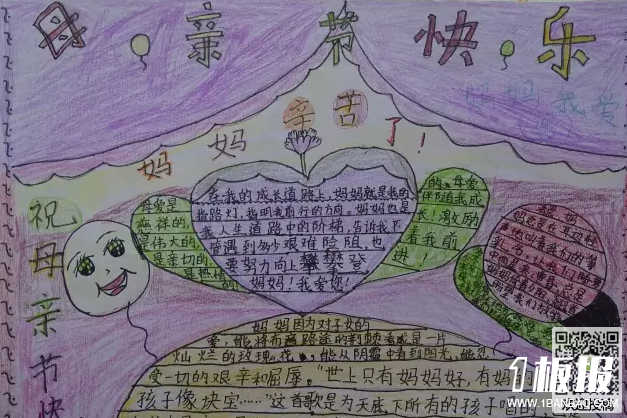 母亲节快乐
妈妈我爱
妈妈辛苦了!
祝母亲节快
母爱是
慈祥的
是伟大的
是亲切的
在我的成长道路上,妈妈就是我的
指路灯,指明我前行的方向,妈妈也是
我人生道路中的阶梯,告诉我不
管遇到多少艰难险阻,也
要努力向上攀攀登
妈妈!我爱您!
的,母爱
伴随我成
长!激励
着我前
进!
妈妈因为对子女的
爱,能将布满路途的荆棘看成是一片
灿烂的玫瑰花,能从阴霾中看到阳光,能忍
受一切的艰辛和屈辱。"世上只有妈妈好,有妈
孩子像块宝……"这首歌是为天底下所有的孩子唱的
1板报
WWW.1BANBAO.COM